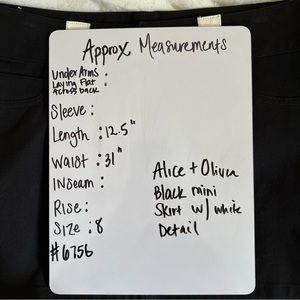 Approx Measurements
Under Arms :
Laying Flat :
Across back
Sleeve :
Length : 12.5"
Waist : 31"
Inseam :
Rise :
Size : 8
#6756
Alice + Olivia
Black mini
Skirt w/ white
Detail